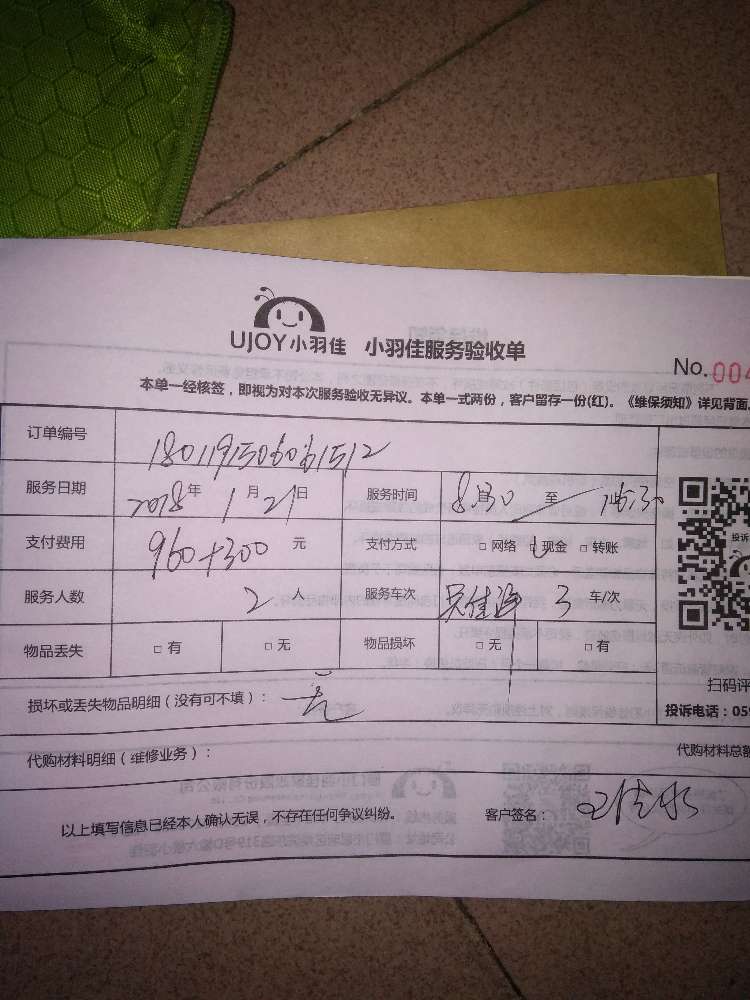 UJOY小羽佳 小羽佳服务验收单
No.004
本单一经核签，即视为对本次服务验收无异议。本单一式两份，客户留存一份(红)。《维保须知》详见背面。
订单编号
服务日期 2018年1月21日 服务时间 8:30 至
支付费用 960+300 元 支付方式 □ 网络 □ 现金 □ 转账
服务人数 2 人 服务车次 3 车/次
物品丢失 □ 有 □ 无 物品损坏 □ 无 □ 有
投诉
扫码评
投诉电话：059
损坏或丢失物品明细（没有可不填）：
代购材料明细（维修业务）： 代购材料总额
以上填写信息已经本人确认无误，不存在任何争议纠纷。 客户签名：